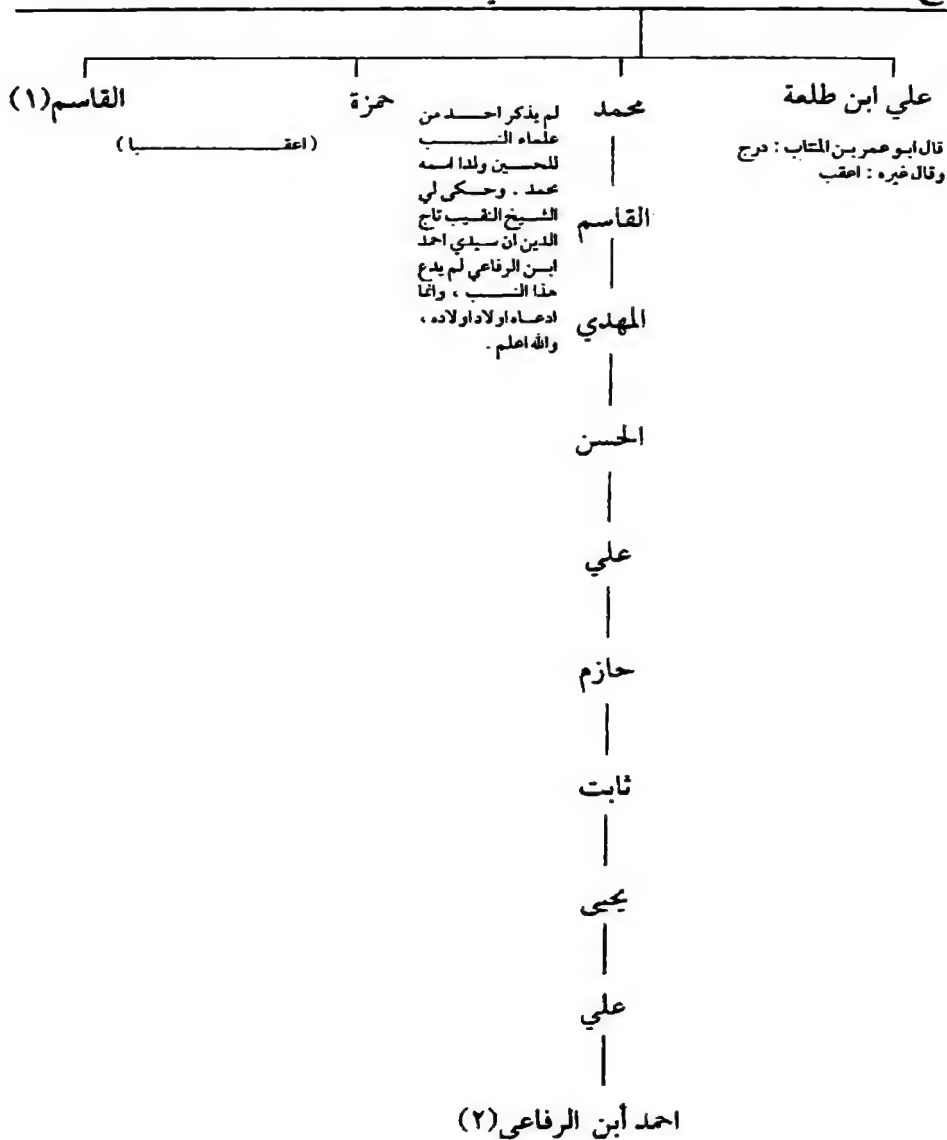 علي ابن طلعة
قال ابو عمر بن المنتاب : درج
وقال غيره : اعقب
محمد
القاسم
المهدي
الحسن
علي
حازم
ثابت
يحيى
علي
احمد أبن الرفاعي (٢)
لم يذكر احد من
علماء النسب
للحسين ولدا اسمه
محمد . وحكى لي
الشيخ النقيب تاج
الدين ان سيدي احمد
ابن الرفاعي لم يدع
هذا النسب ، وانما
ادعاه اولاد اولاده ،
والله اعلم .
حمزة
القاسم (١)
( اعقبا )